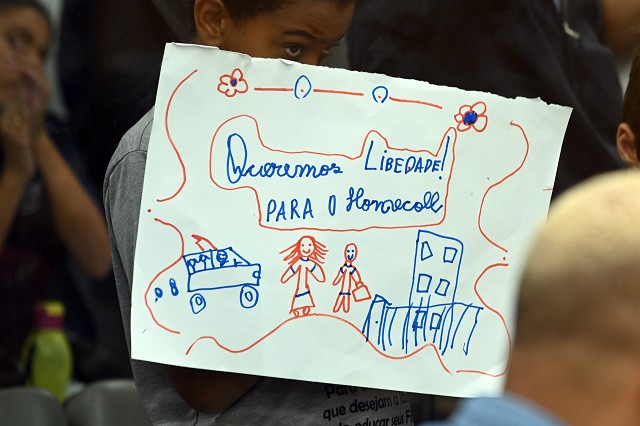 Queremos LIBEDADE!
PARA O Homecoll
Para
que desejam a
educar seus